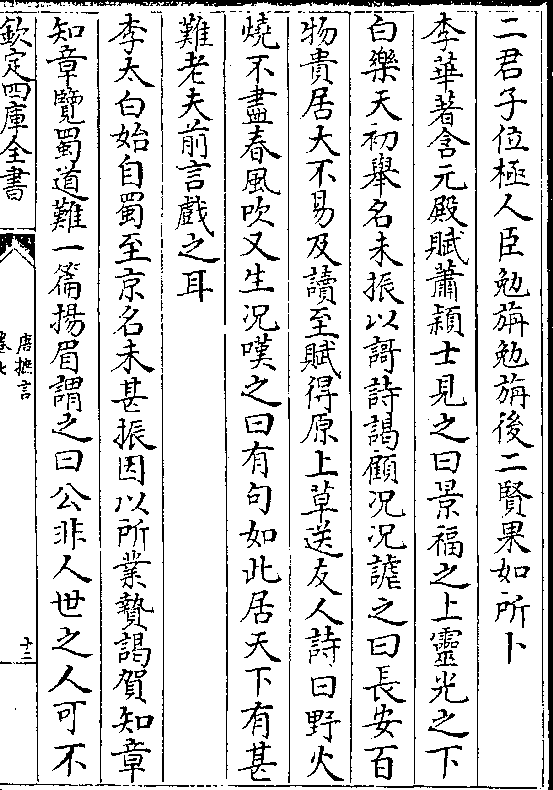 二君子位極人臣勉旃勉旃後二賢果如所卜
李華著含元殿賦蕭穎士見之曰景福之上靈光之下
白樂天初舉名未振以謌詩謁顧况况謔之曰長安百
物貴居大不易及讀至賦得原上草送友人詩曰野火
燒不盡春風吹又生况嘆之曰有句如此居天下有甚
難老夫前言戲之耳
李太白始自蜀至京名未甚振因以所業贄謁賀知章
知章覽蜀道難一篇揚眉謂之曰公非人世之人可不
欽定四庫全書
唐摭言
卷七
十三